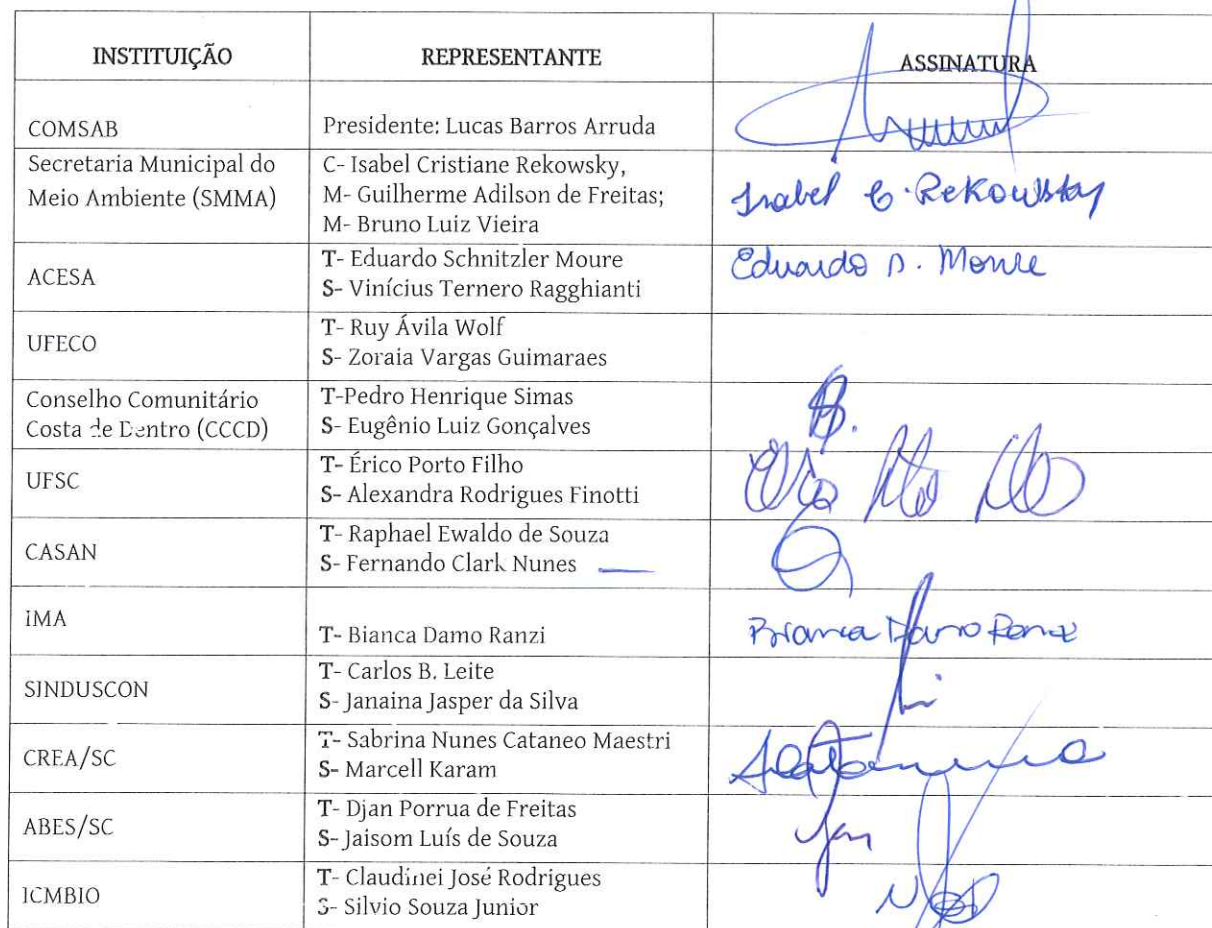 INSTITUIÇÃO REPRESENTANTE ASSINATURA
COMSAB
Presidente: Lucas Barros Arruda
Secretaria Municipal do
Meio Ambiente (SMMA)
C- Isabel Cristiane Rekowsky,
M- Guilherme Adilson de Freitas;
M- Bruno Luiz Vieira
Isabel C. Rekowsky
ACESA
T- Eduardo Schnitzler Moure
S- Vinícius Ternero Ragghianti
Eduardo S. Moure
UFECO
T- Ruy Ávila Wolf
S- Zoraia Vargas Guimaraes
Conselho Comunitário
Costa de Dentro (CCCD)
T-Pedro Henrique Simas
S- Eugênio Luiz Gonçalves
UFSC
T- Érico Porto Filho
S- Alexandra Rodrigues Finotti
CASAN
T- Raphael Ewaldo de Souza
S- Fernando Clark Nunes
IMA
T- Bianca Damo Ranzi
Bianca Damo Ranzi
SINDUSCON
T- Carlos B. Leite
S- Janaina Jasper da Silva
CREA/SC
T- Sabrina Nunes Cataneo Maestri
S- Marcell Karam
ABES/SC
T- Djan Porrua de Freitas
S- Jaisom Luís de Souza
ICMBIO
T- Claudinei José Rodrigues
S- Silvio Souza Junior